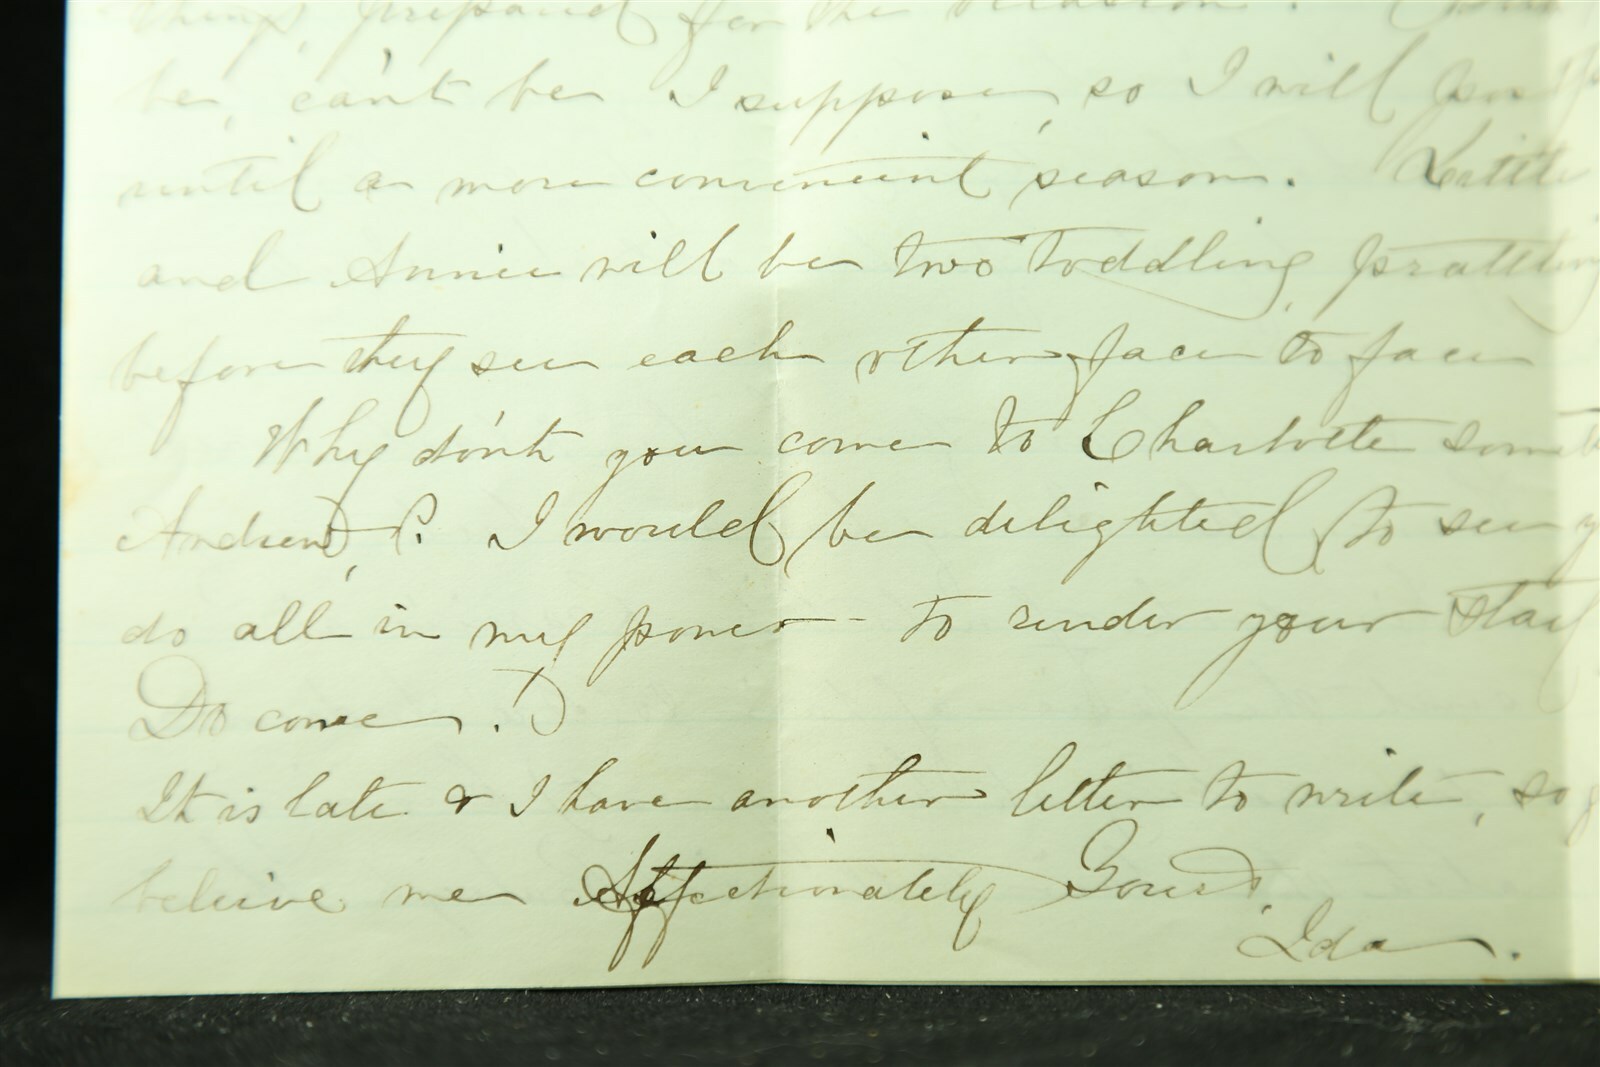 things, prepared for the occasion.
be, can't be I suppose, so I will
until a more convenient season. Little
and Annie will be two toddling, prattling
before they see each other face to face
Why don't you come to Charlotte
Andrew? I would be delighted to see
do all in my power - to render your stay
Do come.
It is late & I have another letter to write, so
beleive me Affectionately Yours,
Ida.